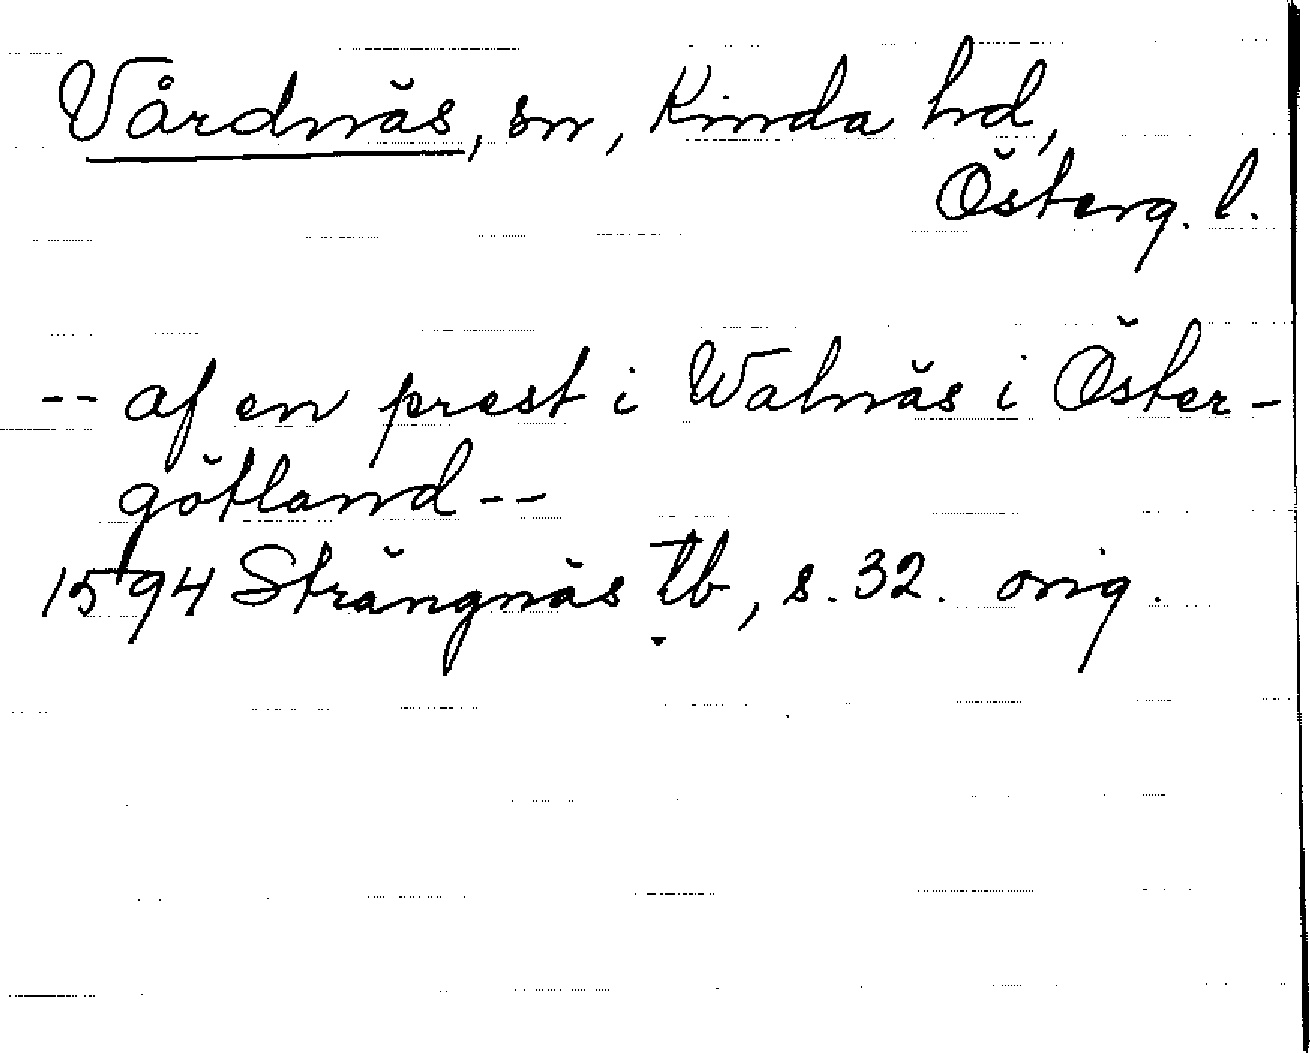 Vårdnäs, sn, Kinda hd,
Österg. l.
-- af en prest i Walnäs i Öster-
götland--
1594 Strängnäs Tb, s. 32. orig.